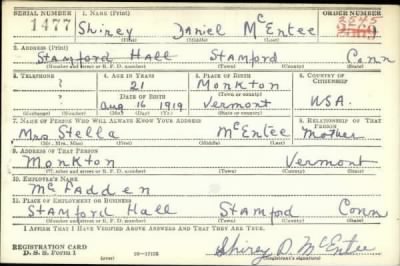 SERIAL NUMBER 1. NAME (Print) ORDER NUMBER
1477 Shirey Daniel McEntee 2545
(First) (Middle) (Last)
2. ADDRESS (Print)
Stamford Hall Stamford Conn
(Number and street or R. F. D. number) (Town) (County) (State)
3. TELEPHONE 4. AGE IN YEARS 5. PLACE OF BIRTH 6. COUNTRY OF CITIZENSHIP
? 21 Monkton
DATE OF BIRTH (Town or county)
Aug 16 1919 Vermont USA.
(Exchange) (Number) (Mo.) (Day) (Yr.) (State or country)
7. NAME OF PERSON WHO WILL ALWAYS KNOW YOUR ADDRESS 8. RELATIONSHIP OF THAT PERSON
Mrs Stella McEntee Mother
(Mr., Mrs., Miss) (First) (Middle) (Last)
9. ADDRESS OF THAT PERSON
Monkton Vermont
(Number and street or R. F. D. number) (Town) (County) (State)
10. EMPLOYER'S NAME
McFadden
11. PLACE OF EMPLOYMENT OR BUSINESS
Stamford Hall Stamford Conn
(Number and street or R. F. D. number) (Town) (County) (State)
I AFFIRM THAT I HAVE VERIFIED ABOVE ANSWERS AND THAT THEY ARE TRUE.
REGISTRATION CARD
D. S. S. Form 1 (over) Shirey D. McEntee
(Registrant's signature)